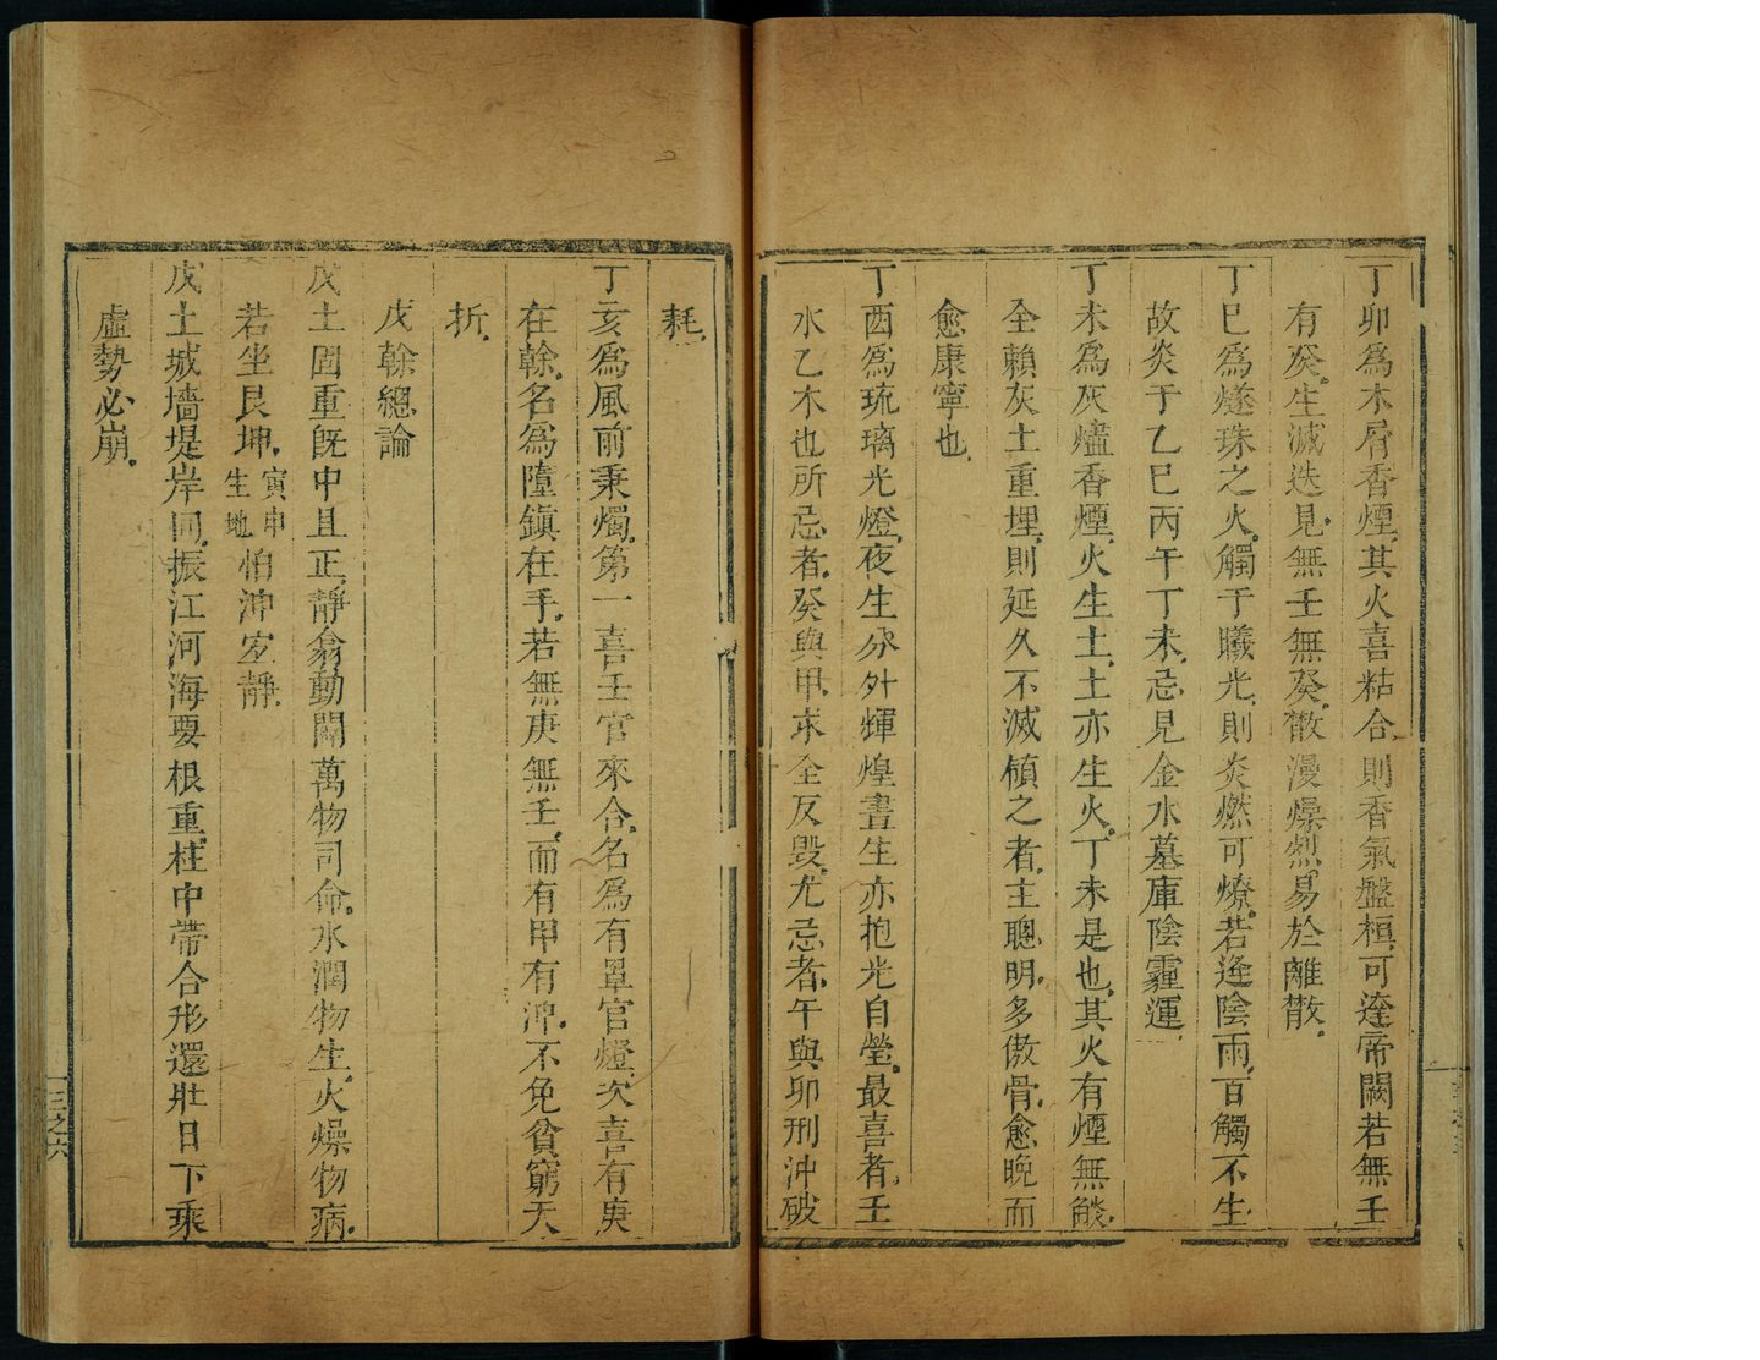 丁卯爲木屑香煙其火喜粘合則香氣盤桓可達帝闕若無壬
有癸生滅迭見無壬無癸散漫燥烈易於離散
丁巳爲燧珠之火觸于曦光則炎燃可燎若逢陰雨百觸不生
故炎于乙巳丙午丁未忌見金水墓庫陰霾運
丁未爲灰燼香煙火生土土亦生火丁未是也其火有煙無燄
全賴灰土重埋則延久不滅値之者主聰明多傲骨愈晚而
愈康寧也
丁酉爲琉璃光燈夜生分外輝煌晝生亦抱光自瑩最喜者壬
水乙木也所忌者癸與甲求全反毀尤忌者午與卯刑沖破
耗
丁亥爲風前秉燭第一喜壬官來合名爲有罩官燈次喜有庚
在幹名爲墮鎮在手若無庚無壬而有甲有沖不免貧窮夭
折
戊幹總論
戊土固重旣中且正靜翕動闢萬物司命水潤物生火燥物病
若坐艮坤寅申生地怕沖宐靜
戊土城墻堤岸同振江河海要根重柱中帶合形還壯日下乘
虛勢必崩
三之六